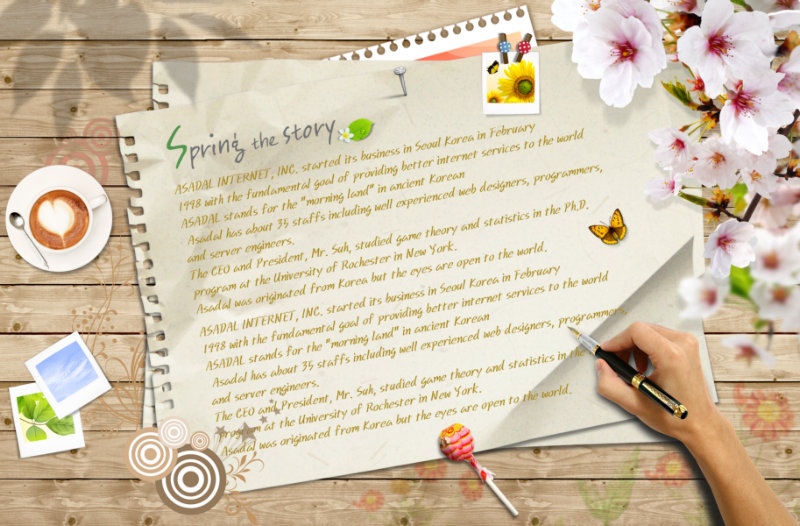 Spring the story
ASADAL INTERNET, INC. started its business in Seoul Korea in February
1998 with the fundamental goal of providing better internet services to the world
ASADAL stands for the "morning land" in ancient Korean
Asadal has about 35 staffs including well experienced web designers, programmers,
and server engineers.
The CEO and President, Mr. Suh, studied game theory and statistics in the Ph.D.
program at the University of Rochester in New York.
Asadal was originated from Korea but the eyes are open to the world.
ASADAL INTERNET, INC. started its business in Seoul Korea in February
1998 with the fundamental goal of providing better internet services to the world
ASADAL stands for the "morning land" in ancient Korean
Asadal has about 35 staffs including well experienced web designers, programmers,
and server engineers.
The CEO and President, Mr. Suh, studied game theory and statistics in the
program at the University of Rochester in New York.
Asadal was originated from Korea but the eyes are open to the world.